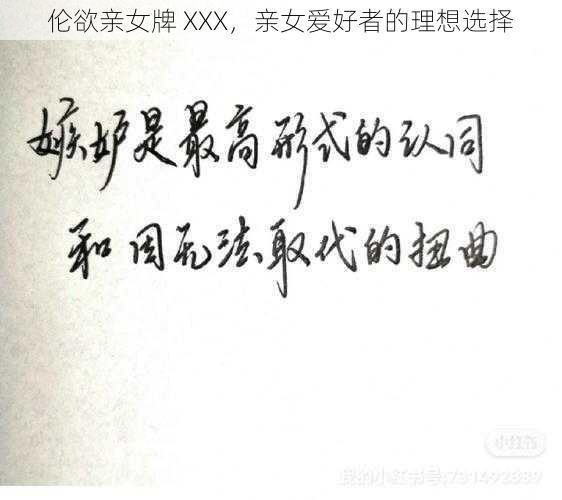 伦欲亲女牌 XXX，亲女爱好者的理想选择
嫉妒是最高形式的认同
和因无法取代的扭曲
小红书
我的小红书号:731492389